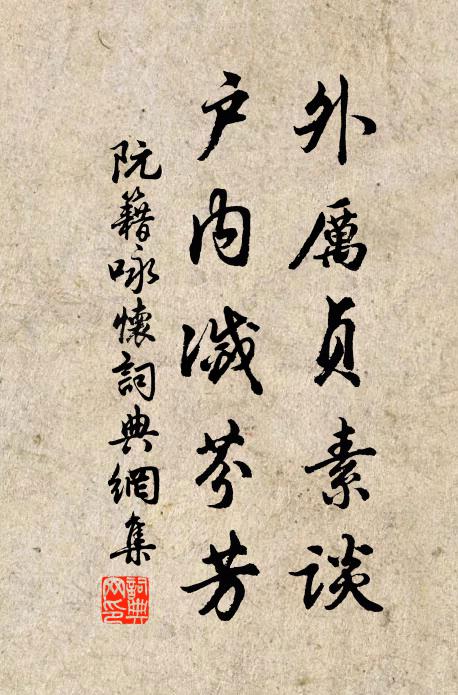 外厲貞素談
户内滅芬芳
阮籍咏懷詞典網集
詞典网印